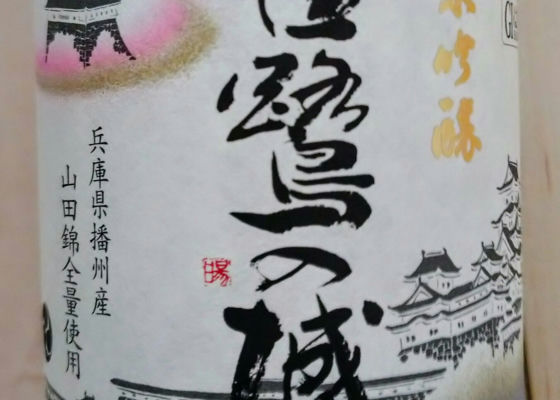 吟醸
鷺の城
兵庫県播州産
山田錦全量使用